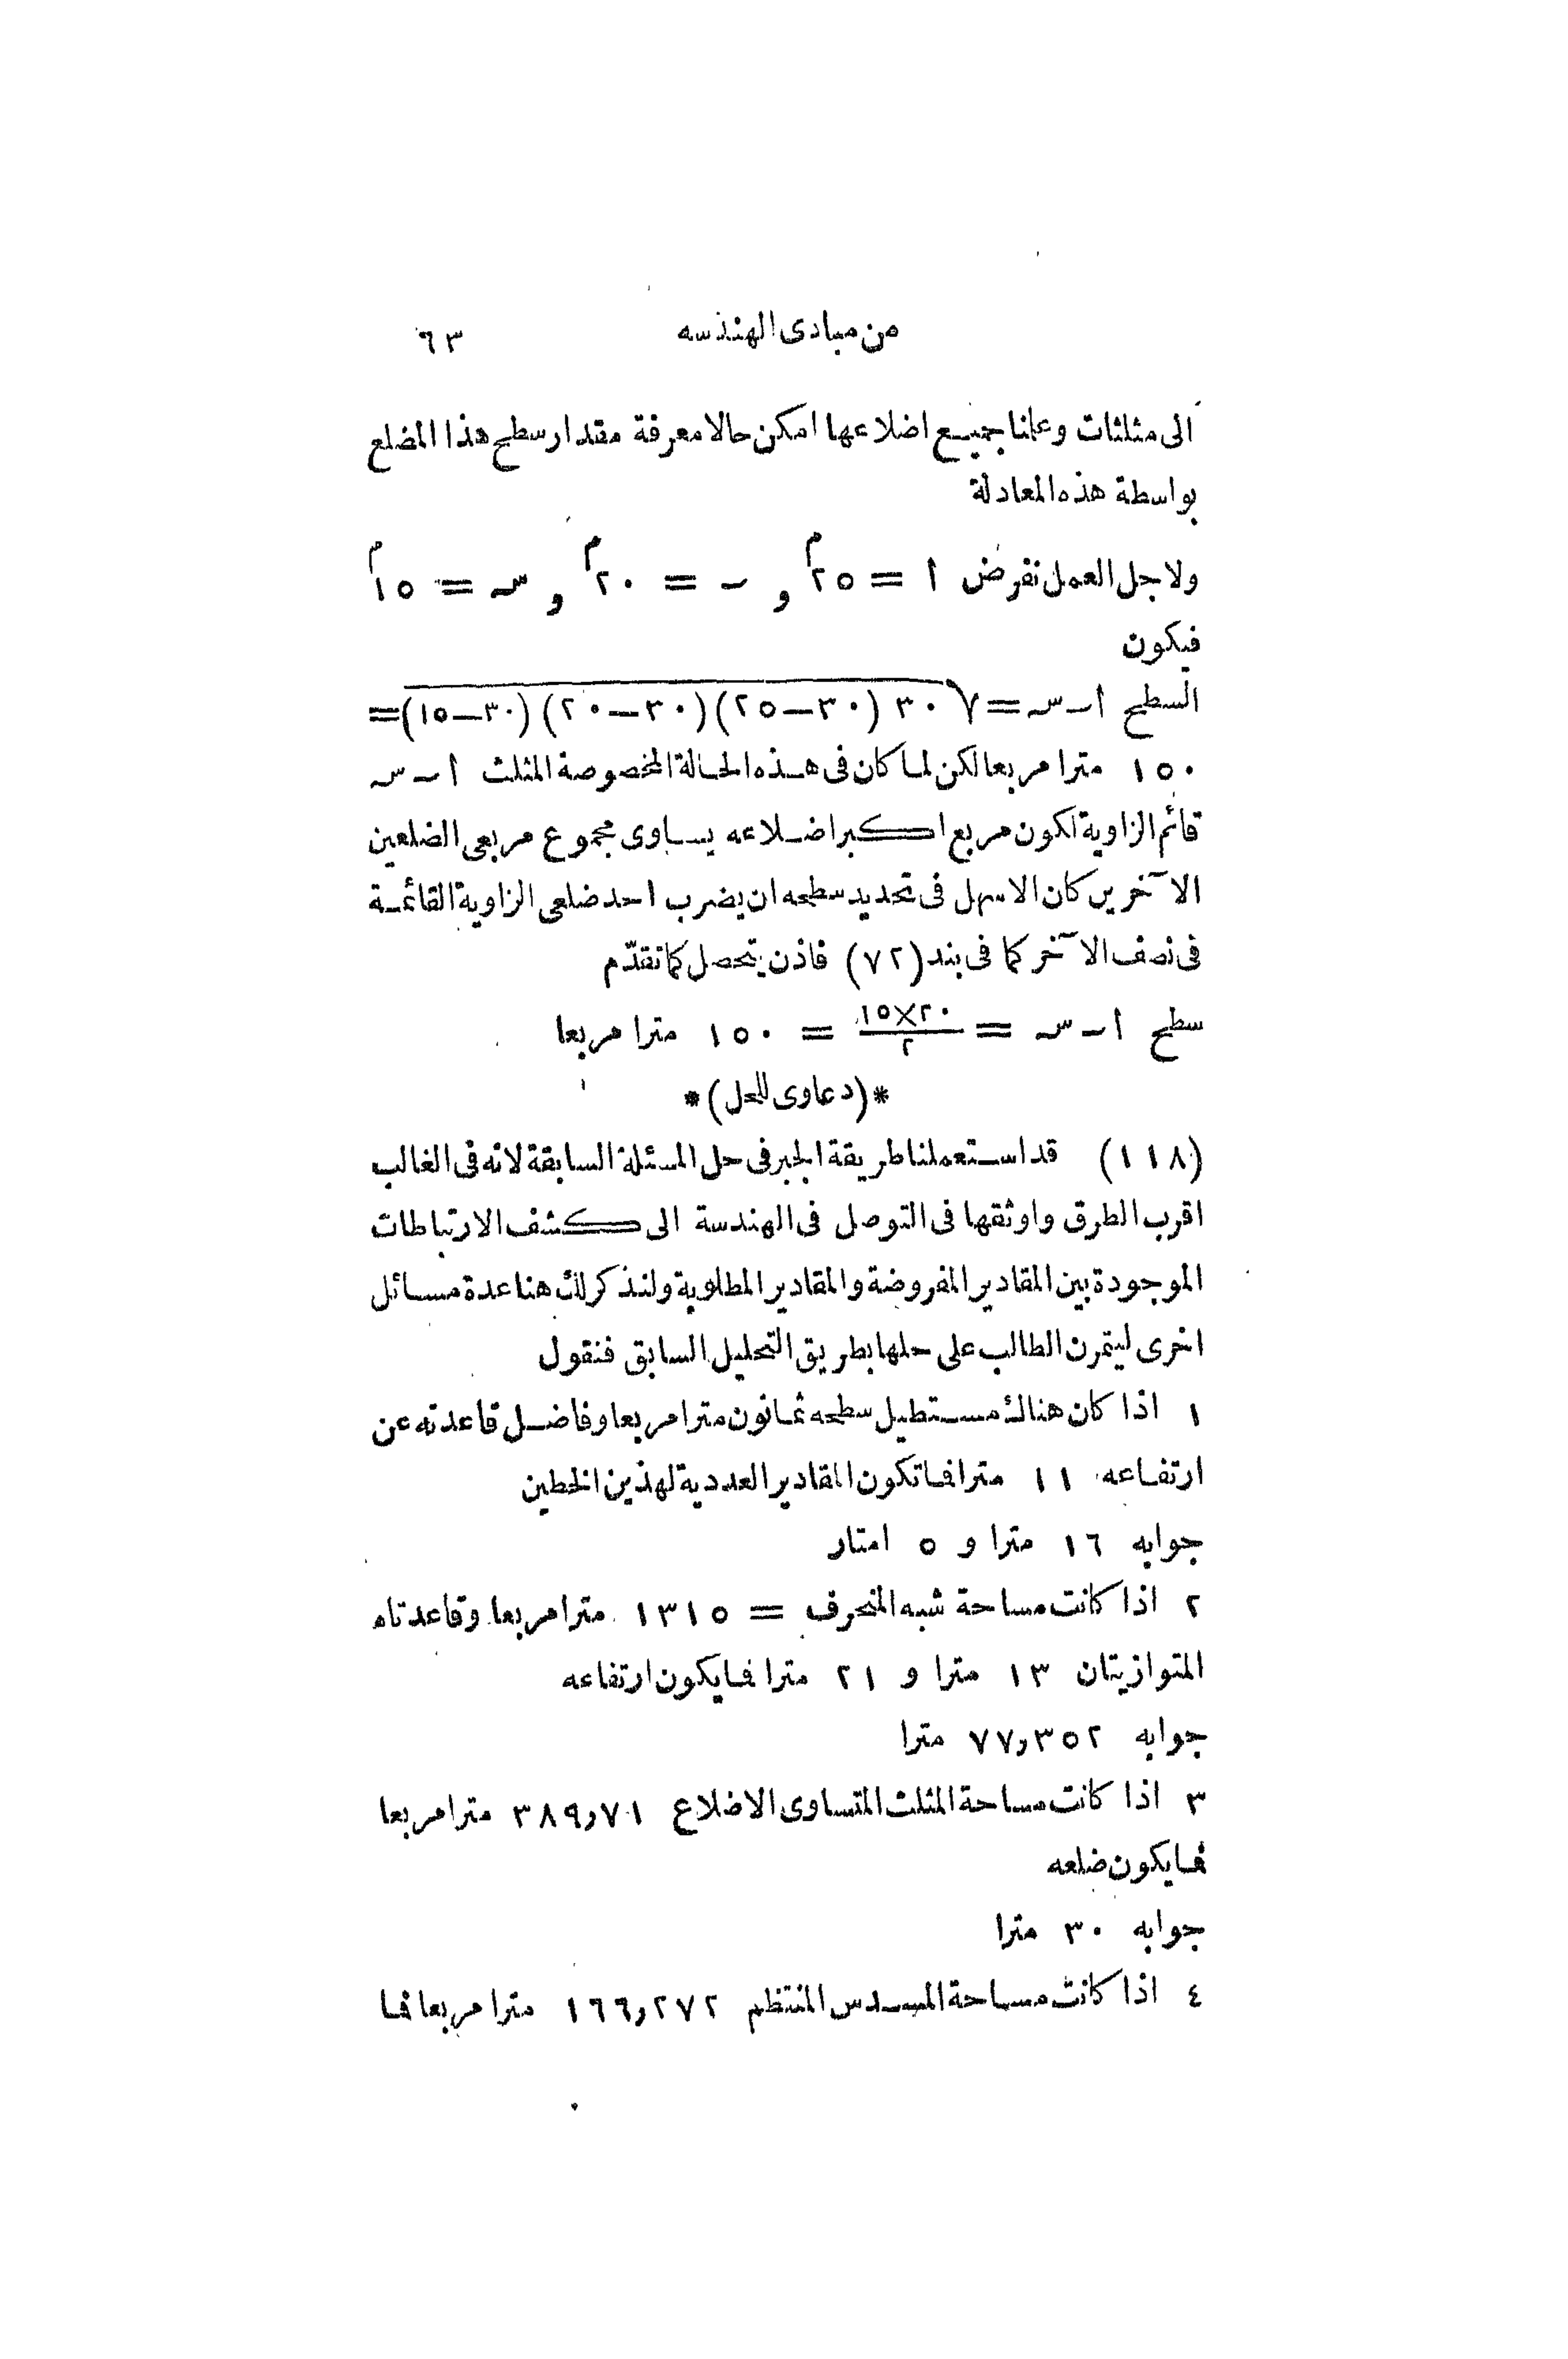 من مبادى الهندسه ٦٣
الى مثلثات وعلمنا جميع اضلاعها امكن حالا معرفة مقدار سطح هذا المضلع
بواسطة هذه المعادلة
ولاجل العمل نفرض ا = ٢٥م و ب = ٢٠م و حـ = ١٥م
فيكون
السطح ا ب حـ = √٣٠(٣٠−٢٥)(٣٠−٢٠)(٣٠−١٥) =
١٥٠ مترا مربعا لكن لما كان فى هذه الحالة المخصوصة المثلث ا ب حـ
قائم الزاوية لكون مربع اكبر اضلاعه يساوى مجموع مربعى الضلعين
الآخرين كان الاسهل فى تحديد سطحه ان يضرب احد ضلعى الزاوية القائمة
فى نصف الآخر كما فى بند (٧٢) فاذن يتحصل كما تقدّم
سطح ا ب حـ = ٢٠×١٥/٢ = ١٥٠ مترا مربعا
*(دعاوى للحل)*
(١١٨) قد استعملنا طريقة الجبر فى حل المسئلة السابقة لانه فى الغالب
اقرب الطرق واوثقها فى التوصل فى الهندسة الى كشف الارتباطات
الموجودة بين المقادير المفروضة والمقادير المطلوبة ولنذكر لك هنا عدة مسائل
اخرى ليتمرن الطالب على حلها بطريق التحليل السابق فنقول
١ اذا كان هناك مستطيل سطحه ثمانون مترا مربعا وفاضل قاعدته عن
ارتفاعه ١١ مترا فما تكون المقادير العددية لهذين الخطين
جوابه ١٦ مترا و ٥ امتار
٢ اذا كانت مساحة شبه المنحرف = ١٣١٥ مترا مربعا وقاعدتاه
المتوازيتان ١٣ مترا و ٢١ مترا فما يكون ارتفاعه
جوابه ٧٧,٣٥٢ مترا
٣ اذا كانت مساحة المثلث المتساوى الاضلاع ٣٨٩,٧١ مترا مربعا
فما يكون ضلعه
جوابه ٣٠ مترا
٤ اذا كانت مساحة المسدس المنتظم ١٦٦,٢٧٢ مترا مربعا فما